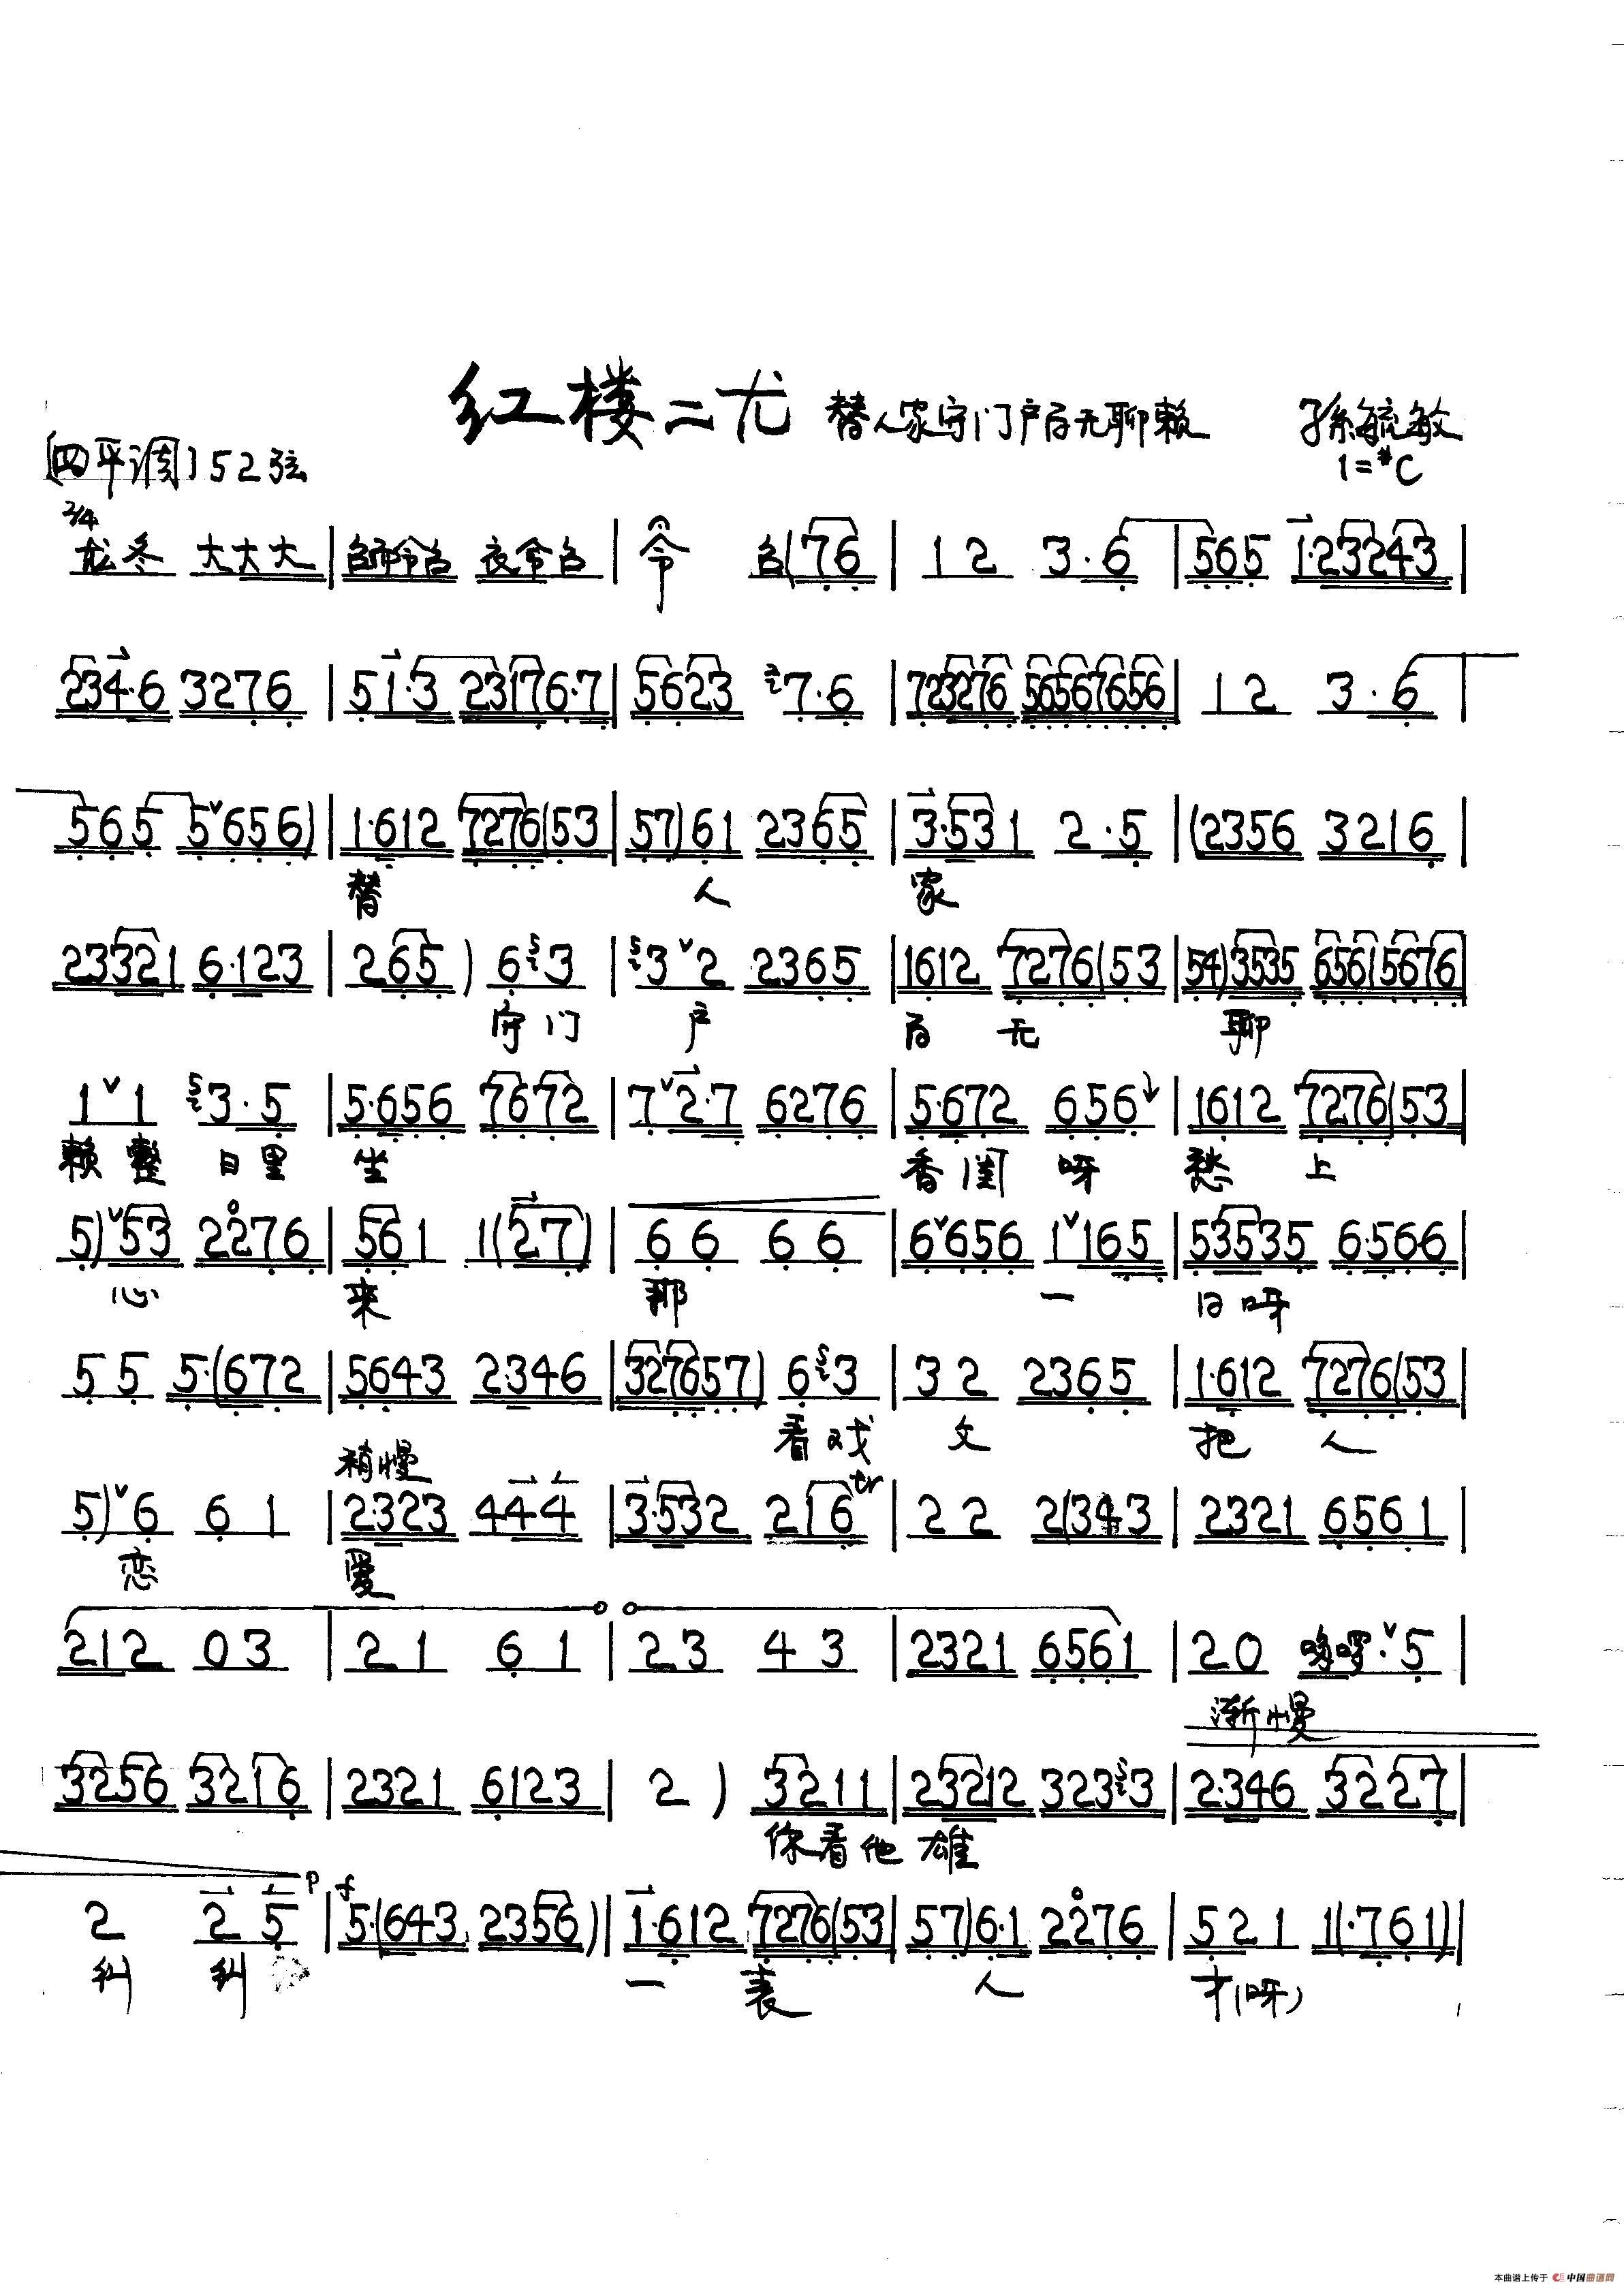 红楼二尤 替人家守门户百无聊赖 孙毓敏
[四平调] 52弦 1=#C
2/4
龙冬 大大大 | 台 台 夜令台 | 令 台(76 | 12 3·6 | 565 1·23243 |
234·6 3276 | 51·3 23176·7 | 5623 7·6 | 723276 56567656 | 12 3·6 |
565 5ˇ656) | 1·612 7276(53 | 57)61 2365 | 3·531 2·5 | (2356 3216 |
替 人 家
23321 6·123 | 265) 6 3 | 3ˇ2 2365 | 1612 7276(53 | 54)3535 65615676 |
守门 户 百 无 聊
1ˇ1 3·5 | 5·656 7672 | 7ˇ2·7 6276 | 5·672 656 | 1612 7276(53 |
赖 整 日里 坐 香闺 呀 愁 上
5)ˇ53 2276 | 561 1(27) | 66 66 | 6ˇ656 1ˇ165 | 53535 6·566 |
心 来 那 一 日呀
55 5·(672 | 5643 2·346 | 327657) 6 3 | 32 2365 | 1·612 7276(53 |
看戏 文 把 人
稍慢
5)ˇ6 61 | 2·323 444 | 3·532 216 tr | 22 2(343 | 2321 6561 |
恋 爱
212 03 | 21 61 | 23 43 | 2321 6561 | 20 哆啰·ˇ5 |
渐慢
3256 3216 | 2321 6123 | 2 ) 3211 | 23212 323 3 | 2·346 3227 |
你看他 雄
p f
2 2 5 | 5·(643 2356) | 1·612 7276(53 | 57)6·1 2276 | 521 1(·761) |
纠 纠 一 表 人 才(呀)
本曲谱上传于 中国曲谱网